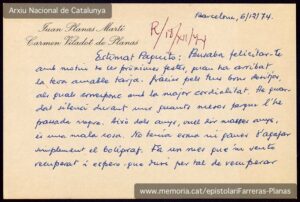 Arxiu Nacional de Catalunya
Barcelona, 6/12/74.
Juan Planas Martí
Carmen Viladot de Planas
R/13/XII/74
Estimat Paquito: Pensaba felicitar-te
amb motiu de les próximes festes, quan ha arribat
la teva amable tarja. Gràcies pels teus bons desitjos
als quals corresponc amb la major cordialitat. He guar-
dat silenci durant uns quants mesos perque l'he
passada negra. Això dels anys, vull dir massa anys,
és una mala cosa. No tenia esma ni paver d'agafar
simplement el bolígraf. Fa un mes que m'he
recuperat i espero que duri per tal de recuperar
www.memoria.cat/epistolariFarreras-Planas